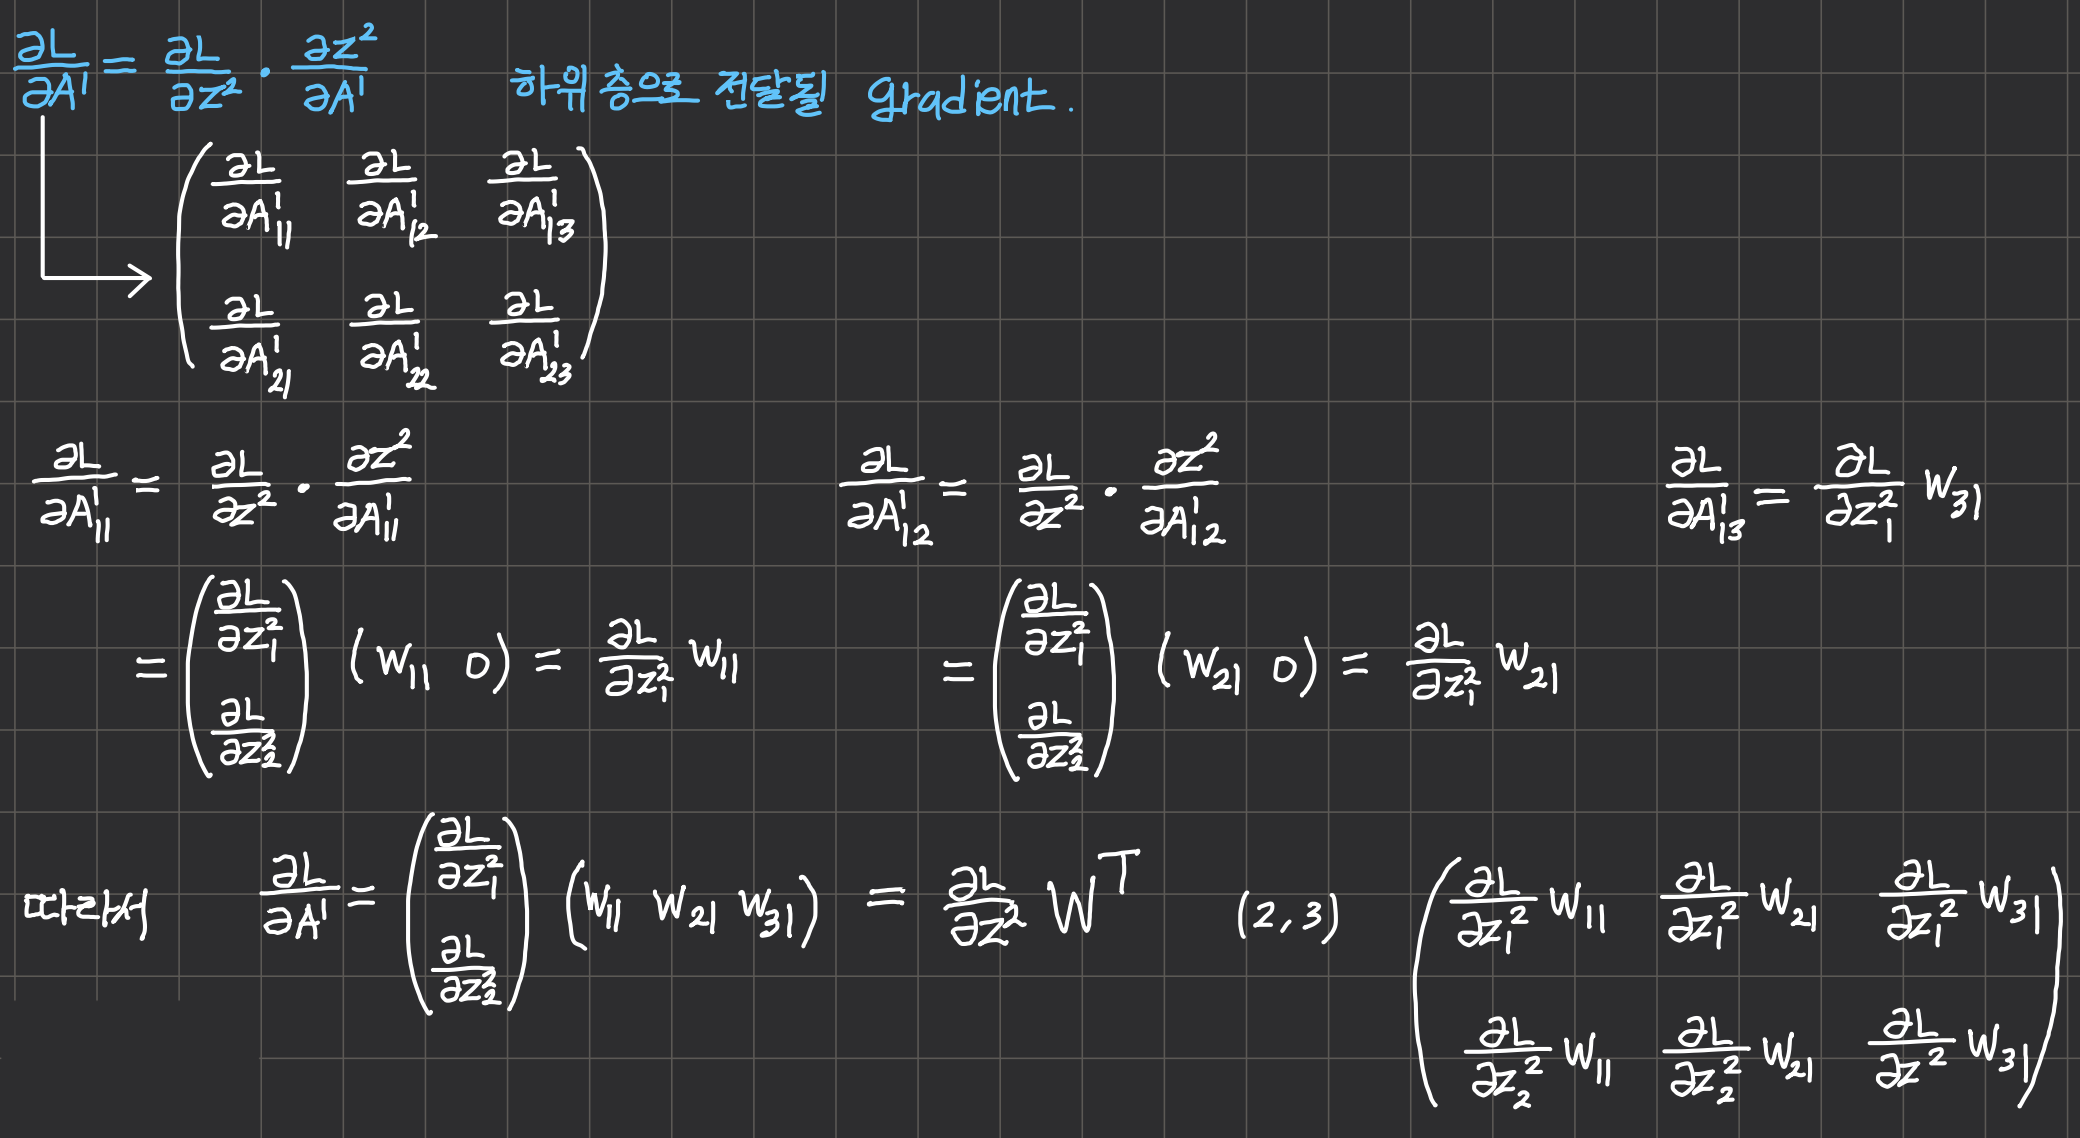 ∂L/∂A¹ = ∂L/∂z² · ∂z²/∂A¹ 하위 층으로 전달될 gradient.
( ∂L/∂A¹₁₁ ∂L/∂A¹₁₂ ∂L/∂A¹₁₃
∂L/∂A¹₂₁ ∂L/∂A¹₂₂ ∂L/∂A¹₂₃ )
∂L/∂A¹₁₁ = ∂L/∂z² · ∂z²/∂A¹₁₁
= ( ∂L/∂z₁² ∂L/∂z₂² ) (W₁₁ 0) = ∂L/∂z₁² W₁₁
∂L/∂A¹₁₂ = ∂L/∂z² · ∂z²/∂A¹₁₂
= ( ∂L/∂z₁² ∂L/∂z₂² ) (W₂₁ 0) = ∂L/∂z₁² W₂₁
∂L/∂A¹₁₃ = ∂L/∂z₁² W₃₁
따라서 ∂L/∂A¹ = ( ∂L/∂z₁² ∂L/∂z₂² ) (W₁₁ W₂₁ W₃₁) = ∂L/∂z² Wᵀ (2,3)
( ∂L/∂z₁² W₁₁ ∂L/∂z₁² W₂₁ ∂L/∂z₁² W₃₁
∂L/∂z₂² W₁₁ ∂L/∂z₂² W₂₁ ∂L/∂z² W₃₁ )